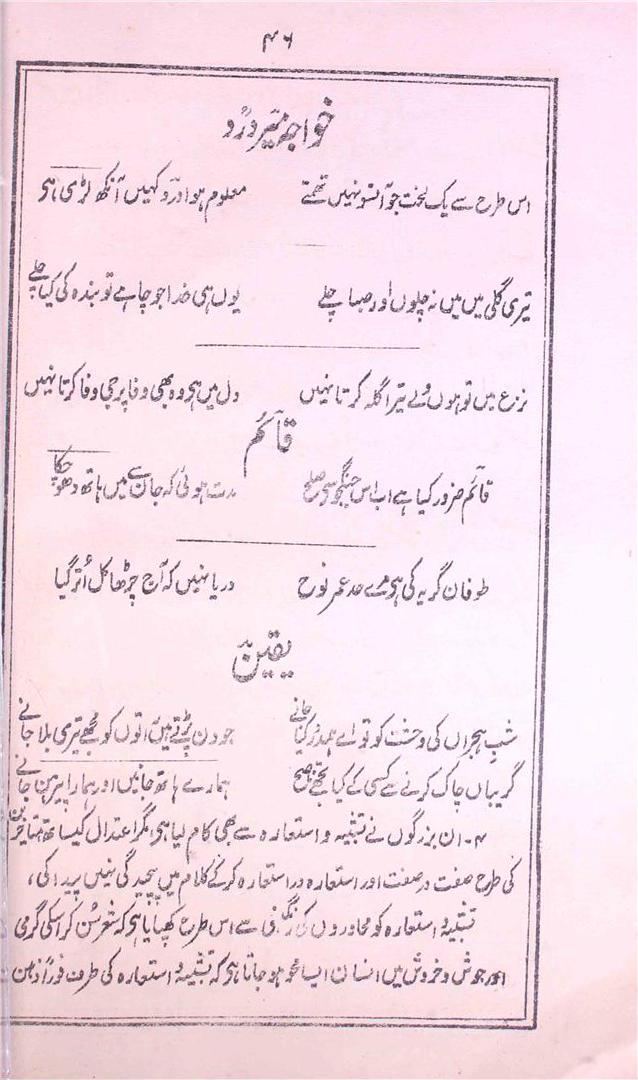 ۴۶
خواجہ میر درد
اس طرح سے یک لخت جو آنسو نہیں تھمتے معلوم ہوا درد کہیں آنکھ لڑی ہی
تیری گلی میں میں نہ چلوں اور صبا چلے یوں ہی خدا جو چاہے تو بندہ کی کیا چلے
نزع میں تو ہوں ولے تیرا گلہ کرتا نہیں دل میں ہی وہ بھی وفا پر جی وفا کرتا نہیں
قائم
قائم ضرور کیا ہے اب اس جنگجو سی صلح مدت ہوئی کہ جان سے میں ہاتھ دھو چکا
طوفان گریہ کی ہی مرے حد عمر نوح دریا نہیں کہ آج چڑھا کل اُتر گیا
یقین
شبِ ہجراں کی وحشت کو تو اے بیدرد کیا جانے جو دن پڑتے ہیں راتوں کو مجھے تیری بلا جانے
گریباں چاک کرنے سے کسی کے کیا تجھے ناصح ہمارے ہاتھ جانیں اور ہمارا پیرہن جانے
۴۔ ان بزرگوں نے تشبیہ و استعارہ سے بھی کام لیا ہی، مگر اعتدال کیساتھ متاخرین
کی طرح صفت در صفت اور استعارہ در استعارہ کرکے کلام میں پیچیدگی نہیں پیدا کی،
تشبیہ و استعارہ کو محاوروں کی رنگینی سے اس طرح کھپایا ہی کہ شعر سُن کر اسکی گرمی
اور جوش و خروش میں انسان ایسا محو ہو جاتا ہی کہ تشبیہ و استعارہ کی طرف فوراً ذہن